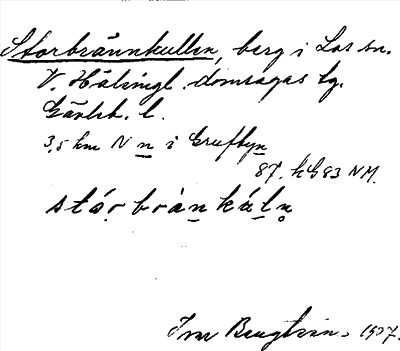 Storbrännkullen, berg i Los sn.
V. Hälsingl. domsagas tg.
Gävleb. l.
3,5 km N n i Grufbyn
87. hG83 NM.
stórbrànkáln
Ivar Bengtsson. 1937.